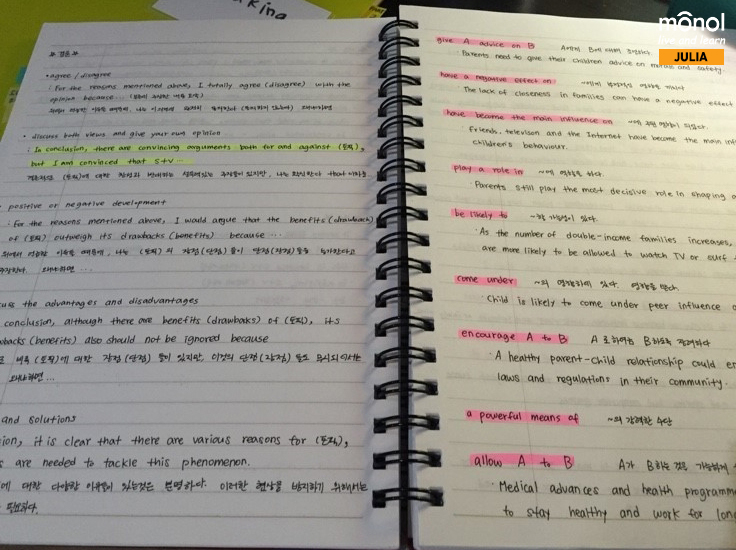 king
monol
live and learn
JULIA
» 결론 »
• agree / disagree
: For the reasons mentioned above, I totally agree (disagree) with the
opinion because ...
• discuss both views and give your own opinion
: In conclusion, there are convincing arguments both for and against (토픽),
but I am convinced that S+V ...
positive or negative development
: For the reasons mentioned above, I would argue that the benefits (drawback)
of (토픽) outweigh its drawbacks (benefits) because ...
위에서 언급한 이유들 때문에, 나는 (토픽) 의 장점(단점) 들이 단점(장점)들을 능가한다고
주장한다. 왜냐하면 ...
uss the advantages and disadvantages
conclusion, although there are benefits (drawbacks) of (토픽), its
wbacks (benefits) also should not be ignored because
비록 (토픽)에 대한 장점(단점) 들이 있지만, 이것의 단점(장점) 들도 무시되어서는
왜냐하면 ...
and solutions
ion, it is clear that there are various reasons for (토픽),
s are needed to tackle this phenomenon.
에 대한 다양한 이유들이 있는것은 분명하다. 이러한 현상을 방지하기 위해서는
필요하다.
give A advice on B A에게 B에 대해 조언하다.
· Parents need to give their children advice on morals and safety.
have a negative effect on
The lack of closeness in families can have a negative effect
have become the main influence on
· Friends, televison and the Internet have become the main inf
children's behaviour.
play a role in ~에 역할을 하다.
Parents still play the most decisive role in shaping a
be likely to ~할 가능성이 있다.
· As the number of double-income families increases,
are more likely to be allowed to watch TV or surf t
come under ~의 영향하에 있다. 영향을 받다.
· Child is likely to come under peer influence o
encourage A to B A 로하여금 B하도록 장려하다
· A healthy parent-child relationship could en
laws and regulations in their community.
a powerful means of ~의 강력한 수단
allow A to B A가 B하는 것을 가능하게
· Medical advances and health programme
to stay healthy and work for long